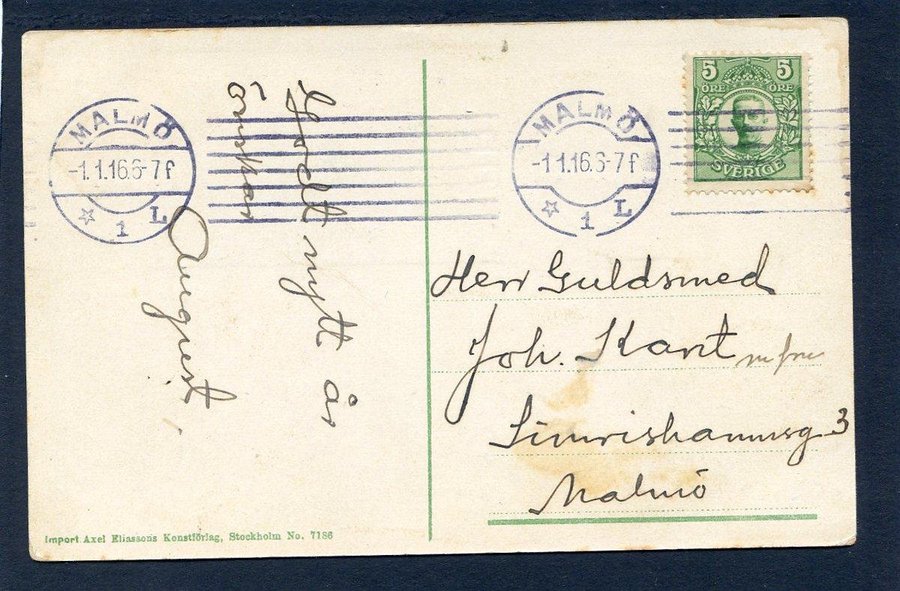 MALMÖ
-1.1.16.6-7 f
☆ 1 L
MALMÖ
-1.1.16.6-7 f
☆ 1 L
5 5
ÖRE ÖRE
SVERIGE
Godt nytt år
önskar
August.
Herr Guldsmed
Joh. Kant m fru
Simrishamnsg 3
Malmö
Import Axel Eliassons Konstförlag, Stockholm No. 7186